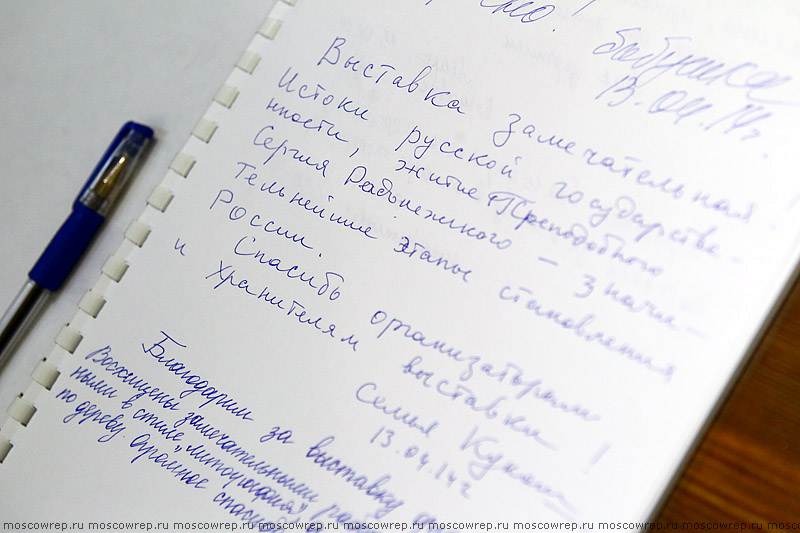 бабушка
13.04.14г.
Выставка замечательная.
Истоки русской государстве-
нности, житие Преподобного
Сергия Радонежского – значи-
тельнейшие этапы становления
России.
Спасибо организаторам
и хранителям выставки!
Семья
13.04.14г
Благодарим за выставку
Восхищены замечательными
ными в стиле „литография"
по дереву. Огромное спасибо
moscowrep.ru moscowrep.ru moscowrep.ru moscowrep.ru moscowrep.ru moscowrep.ru moscowrep.ru moscowrep.ru moscowrep.ru